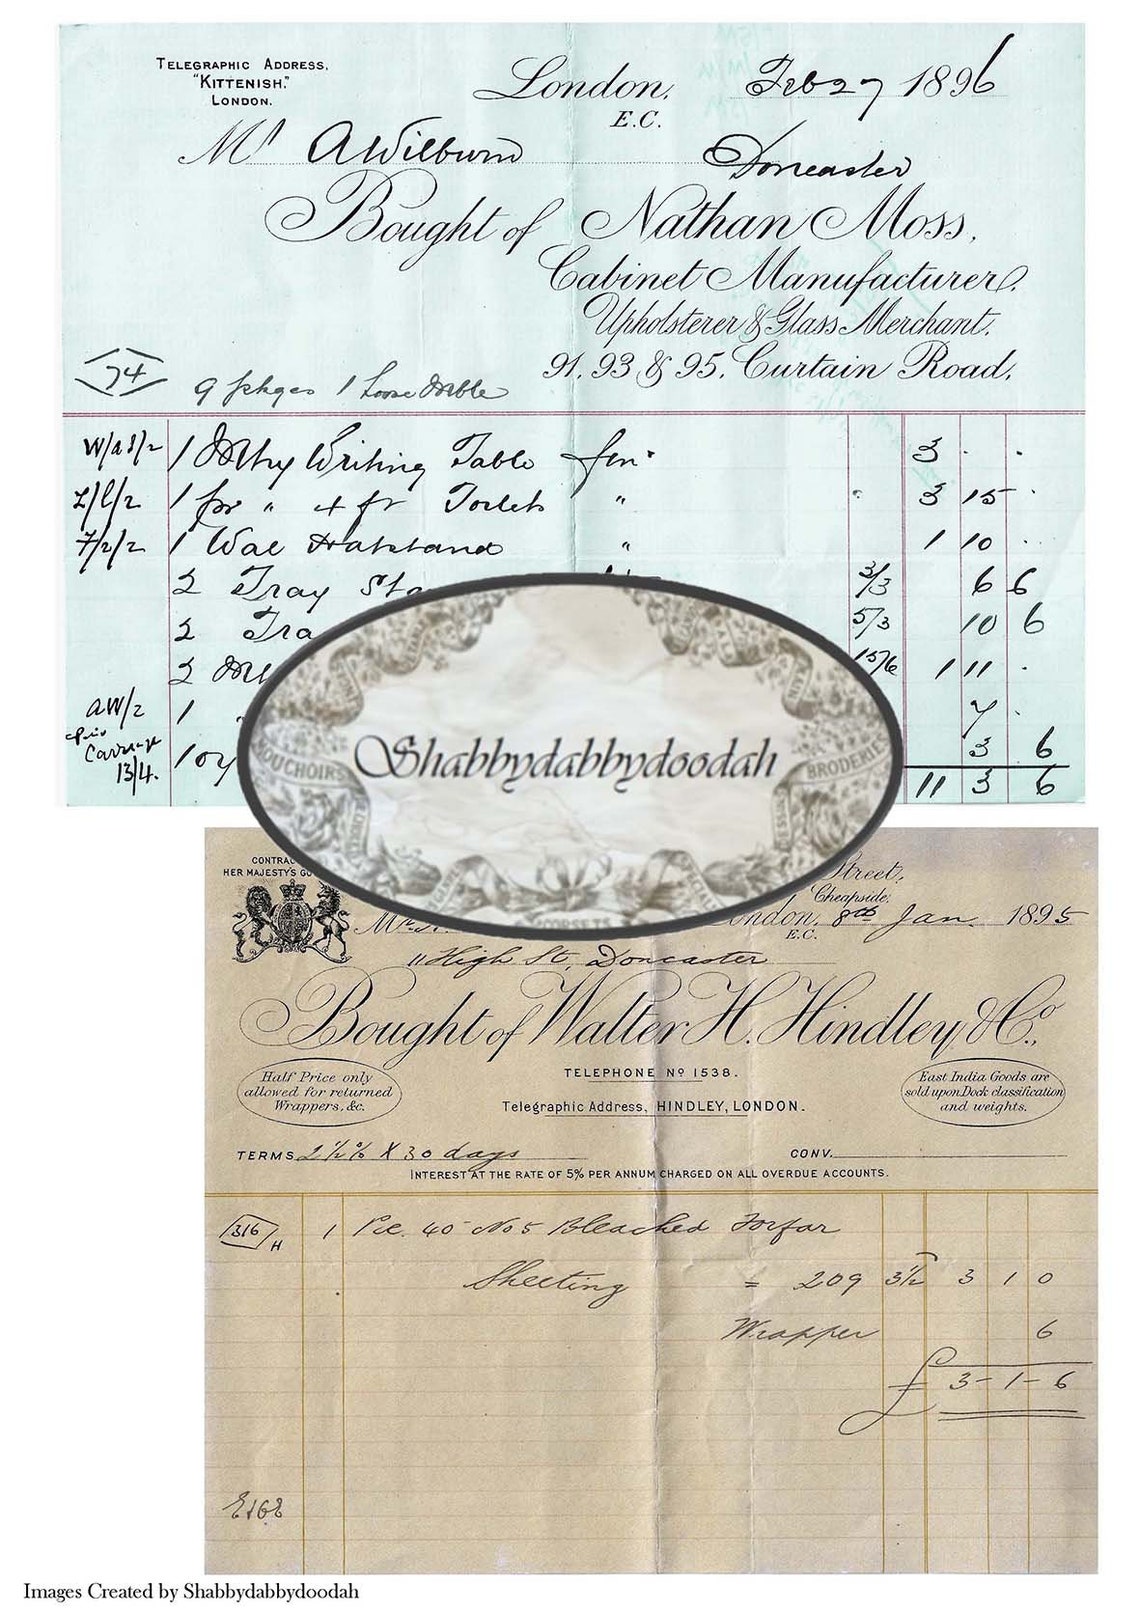 TELEGRAPHIC ADDRESS,
"KITTENISH."
LONDON.
London, Feb 27 1896
E.C.
Mr A Wilburn Doncaster
Bought of Nathan Moss,
Cabinet Manufacturer,
Upholsterer & Glass Merchant.
91, 93 & 95, Curtain Road,
74
9 pkges 1 Loose
1 Writing Table 3 . .
1 pr " Toilets " 3 15 .
1 Wal Hatstand " 1 10 .
2 Tray Sta 3/3 6 6
2 Tra 5/3 10 6
2 15/6 1 11 .
1 7 .
3 6
Carriage
13/4.
11 3 6
Shabbydabbydoodah
MOUCHOIRS
BRODERIES
CORSETS
CONTRAC
HER MAJESTY'S GO
Street,
Cheapside,
London, 8th Jan. 1895
E.C.
High St, Doncaster
Bought of Walter H. Hindley & Co.,
TELEPHONE No 1538.
Half Price only
allowed for returned
Wrappers, &c.
East India Goods are
sold upon Dock classification
and weights.
Telegraphic Address, HINDLEY, LONDON.
TERMS 2 1/2 % X 30 days CONV.
INTEREST AT THE RATE OF 5% PER ANNUM CHARGED ON ALL OVERDUE ACCOUNTS.
316/H 1 Pce. 40 No 5 Bleached Forfar
Sheeting = 209 3½ 3 1 0
Wrapper 6
£ 3-1-6
Images Created by Shabbydabbydoodah